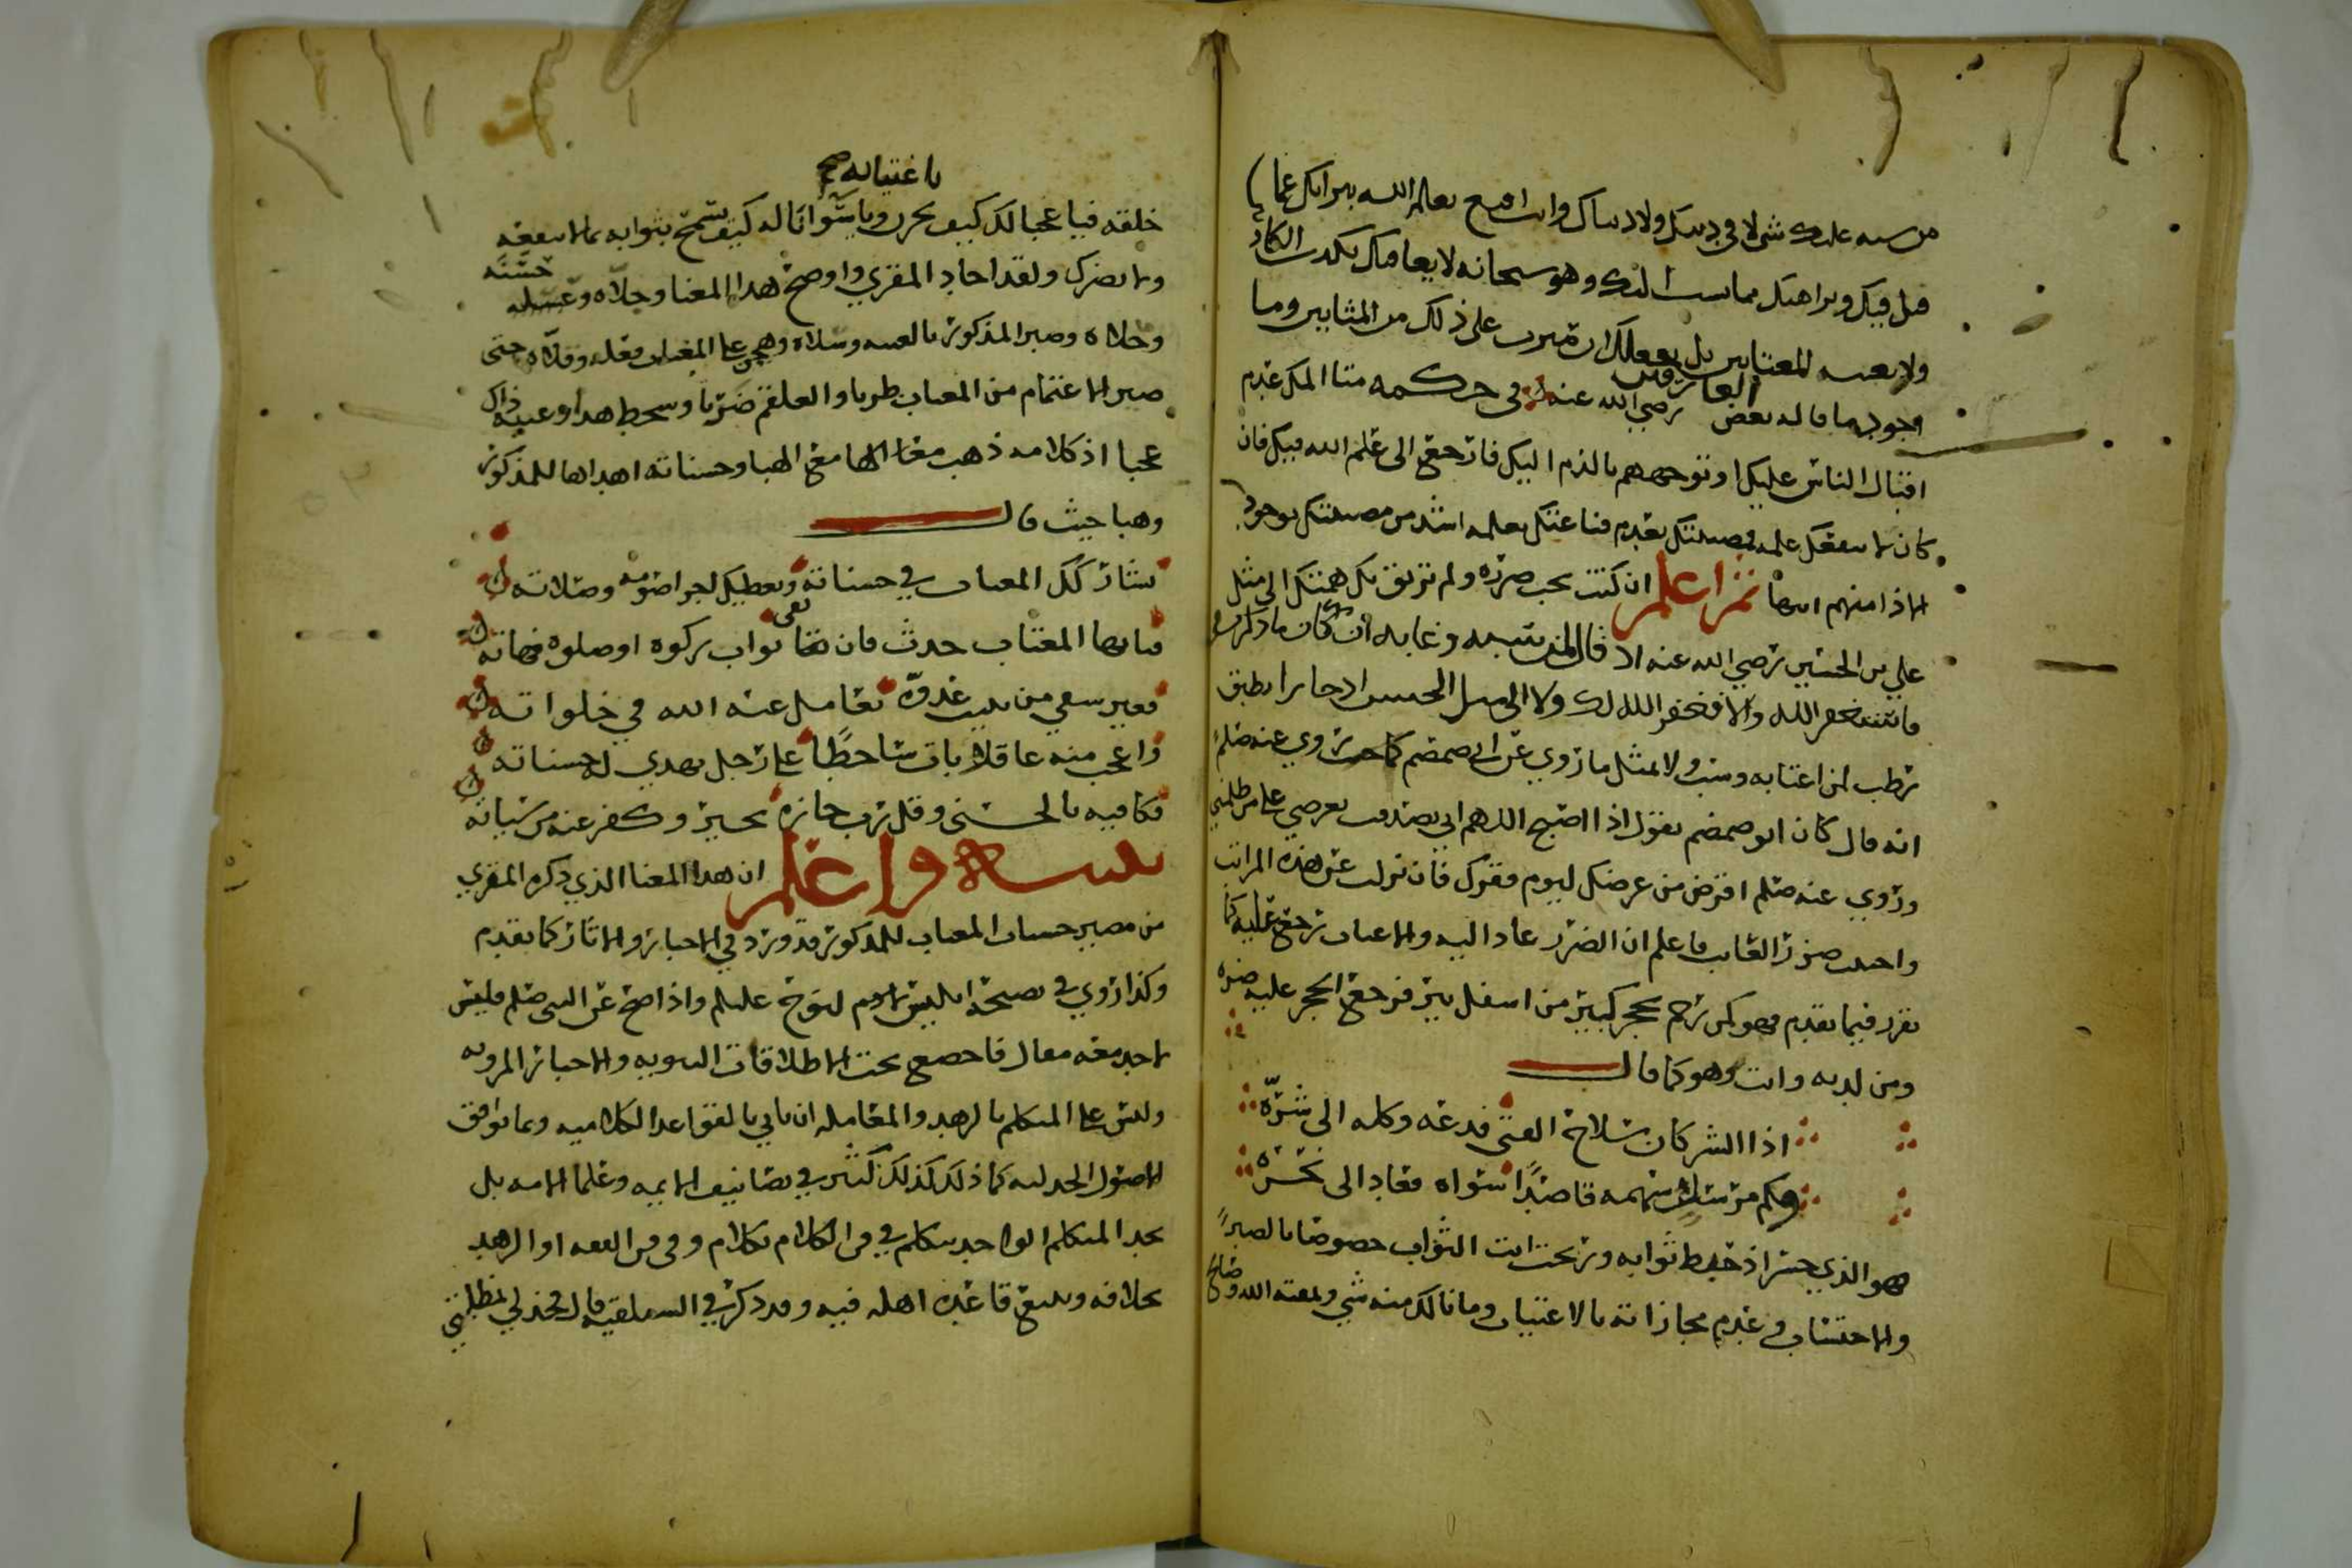 من سبه عليك شي لا في دينك ولا دنياك وانت اقبح يعلم الله يبرانك عما
قيل فيك وبراهتك مما نسب اليك وهو سبحانه لا يعاملك بكذب الكاذ
ولا يعينه للمغتابين بل يعملك ان صبرت على ذلك من المثابين وما
اجود ما قاله بعض العارفين رضي الله عنه في حكمه متا المك عدم
اقبال الناس عليك او توجههم بالذم اليك فارجع الى علم الله فيك فان
كان لا ينفعك علمه فمصيبتك بعدم قناعتك بعلمه اشد من مصيبتك بوجود
الاذا منهم انتها ثم اعلم ان كنت تحب ضره ولم ترتق بك همتك الى مثل
علي بن الحسين رضي الله عنه اذ قال لمن سبه وعابه ان كان ما ذكرت في
فاستغفر الله والا فغفر الله لك ولا الى ميل الحسن اذ جا برا بطبق
رطب لمن اغتابه وسبه ولا لمثل ما روي عن ابي ضمضم كما حين روي عنه صلم
انه قال كان ابو ضمضم يقول اذا اصبح اللهم اني تصدقت بعرضي على من ظلمني
وروي عنه صلم اقرض من عرضك ليوم فقرك فان نزلت عن هذه المراتب
واحببت ضرر العايب فاعلم ان الضرر عاد اليه والاغتياب ترجع عليه كما
تقرر فيما تقدم فهو كمن رجم بحجر كبير من اسفل بير فرجع الحجر عليه ضره
ومن لديه وانت وهو كما قال
اذا الشر كان سلاح الفتى فدعه وكله الى شره
وكم مرسل سهمه قاصدا سواه فعاد الى نحره
هو الذي خسر اذ حبط ثوابه وربحت انت الثواب خصوصا بالصبر
والاحتساب وعدم مجازاته بالاغتياب وما نالك منه شي ولعنه الله وصالح
باغتيابه صح
خلقه فيا عجبا لك كيف تحزن ويا سوانا له كيف يسمح بثوابه بما لا ينفعه
ولا يضرك ولقد اجاد المقري واوضح هذا المعنا وجلاه وحسنه
وحلاه وصبر المذكور بالغيبه وسلاه وهجن على المغتاب فعله وقلاه حتى
صير الاغتمام من المعاب طربا والعلقم ضربا وسخط هذا وعيبه ذاك
عجبا اذ كلامه ذهب معنا الهامع الهبا وحسناته اهداها للمذكور
وهبا حيث قال
يشاركك المغتاب في حسناته ويعطيك اجر اصومه وصلاته
فيا ايها المغتاب حدث فان بقي ثواب زكوه او صلوه فهاته
فغير سقي من يبيت عدوه يعامل عنه الله في خلواته
واعجب منه عاقلا بات ساخطا على رجل يهدي له حسناته
فكافيه بالحسنى وقل رب جازه بخير وكفر عنه من سياته
تنبيه واعلم ان هذا المعنا الذي ذكره المقري
من مصير حسنات المغتاب للمذكور قد ورد في الاخبار والاثار كما تقدم
وكذا روي في نصيحة ابليس لاهم لنوح عليلم واذا صح عن النبي صلم فليس
لاحد معه مقال فاخضع تحت الاطلاقات النبويه والاخبار المرويه
وليس على المتكلم بالزهد والمعامله ان ياتي بالقواعد الكلاميه وبما توافق
الاصول الجدليه كما ذلك كذلك كثير في تصانيف الايمه وعلما الامه بل
تجد المتكلم الواحد يتكلم في فن الكلام بكلام وفي فن الفقه او الزهد
بخلافه ويتبع قاعده اهله فيه وقد ذكر في السعلقيه قال فخذ لي بمظلمتي